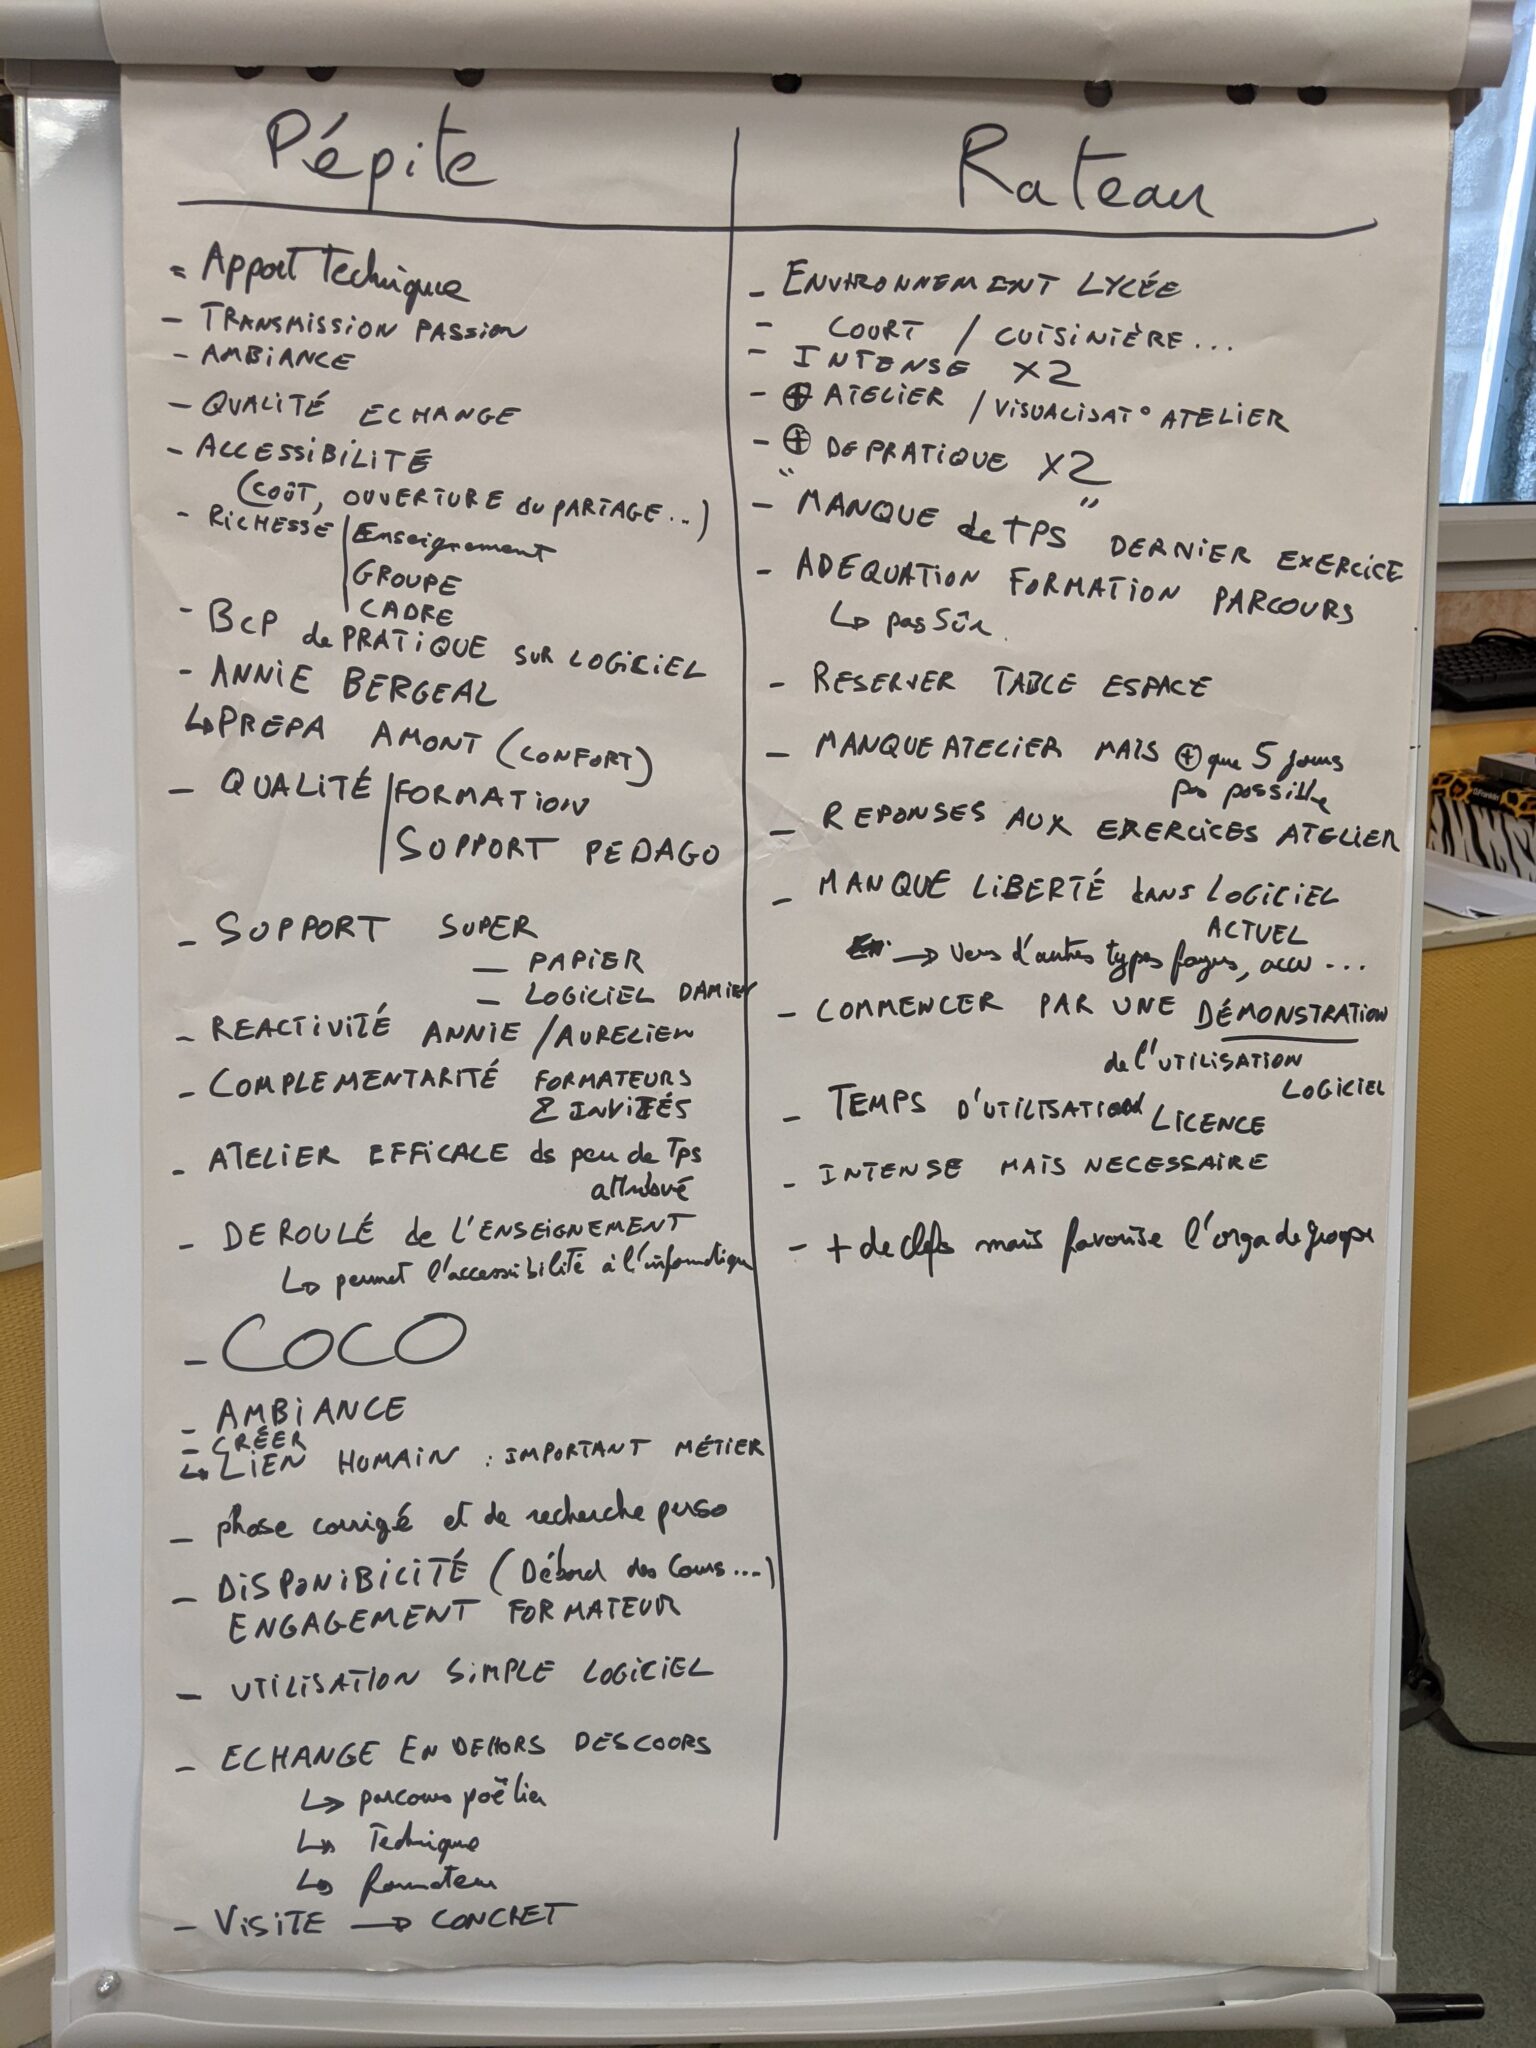 Pépite
- Apport Technique
- TRANSMISSION PASSION
- AMBIANCE
- QUALITÉ ECHANGE
- ACCESSIBILITÉ
(COÛT, OUVERTURE du PARTAGE...)
- RICHESSE | Enseignement
| GROUPE
| CADRE
- BCP de PRATIQUE SUR LOGICIEL
- ANNIE BERGEAL
↳ PREPA AMONT (CONFORT)
- QUALITÉ | FORMATION
| SUPPORT PEDAGO
- SUPPORT SUPER
- PAPIER
- LOGICIEL DAMIEN
- REACTIVITÉ ANNIE / AURELIEN
- COMPLEMENTARITÉ FORMATEURS
& INVITÉS
- ATELIER EFFICALE ds peu de Tps
attribué
- DEROULÉ de L'ENSEIGNEMENT
↳ permet l'accessibilité à l'informatique
- COCO
- AMBIANCE
- CRÉER
↳ LIEN HUMAIN : IMPORTANT MÉTIER
- phase corrigé et de recherche perso
- DISPONIBILITÉ (Débord des Cours....)
ENGAGEMENT FORMATEUR
- UTILISATION SIMPLE LOGICIEL
- ECHANGE EN DEHORS DES COURS
↳ parcours poêlier
↳ Technique
↳ formateur
- VISITE → CONCRET
Rateau
- ENVIRONNEMENT LYCÉE
- COURT / CUISINIÈRE...
- INTENSE X2
- ⊕ ATELIER / VISUALISAT° ATELIER
- ⊕ DE PRATIQUE X2
- "MANQUE de TPS" DERNIER EXERCICE
- ADEQUATION FORMATION PARCOURS
↳ pas Sûr.
- RESERVER TABLE ESPACE
- MANQUE ATELIER MAIS ⊕ que 5 jours
pas possible
- REPONSES AUX EXERCICES ATELIER
- MANQUE LIBERTÉ dans LOGICIEL
ACTUEL
→ Vers d'autres types foyers, accu ...
- COMMENCER PAR UNE DÉMONSTRATION
de l'UTILISATION
LOGICIEL
- TEMPS D'UTILISATION LICENCE
- INTENSE MAIS NECESSAIRE
- + de clefs mais favorise l'orga de groupe